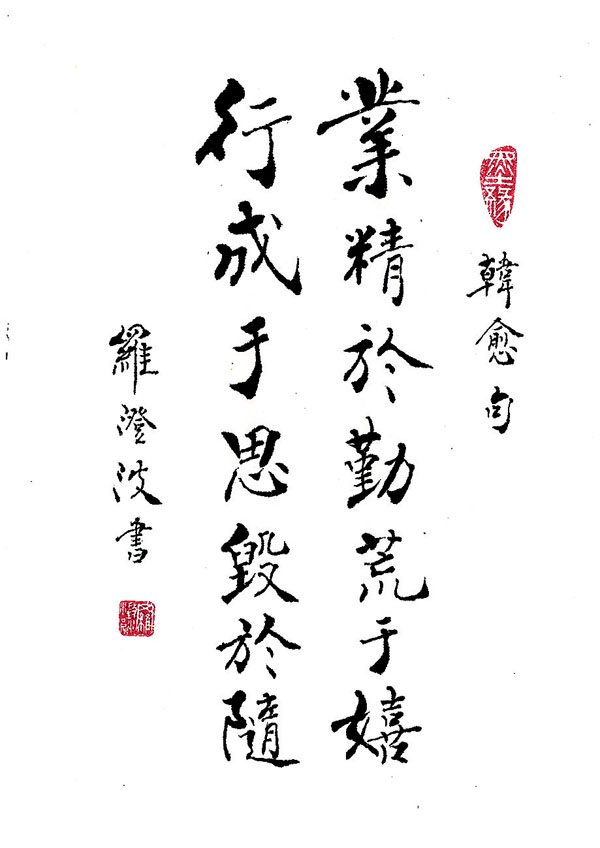 韓愈句
業精於勤荒于嬉
行成于思毀於隨
羅澄波書